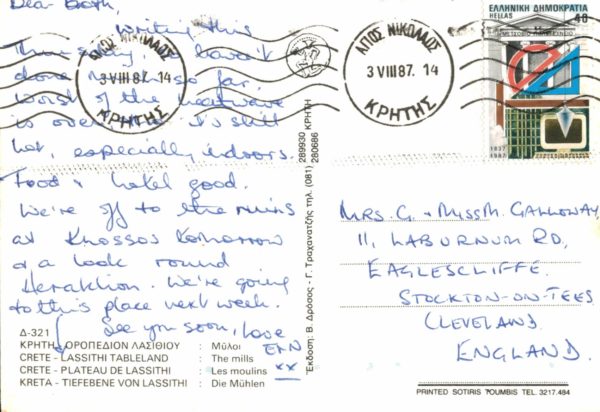 Dear Both,
Writing this
Thurs day, we haven't
done much so far,
worst of the heatwave
is over, but it's still
hot, especially indoors.
Food & hotel good.
We're off to the ruins
at Knossos tomorrow
& a look round
Heraklion. We're going
to this place next week.
See you soon, love
xx
Δ-321
ΚΡΗΤΗ - ΟΡΟΠΕΔΙΟΝ ΛΑΣΙΘΙΟΥ : Μύλοι
CRETE - LASSITHI TABLELAND : The mills
CRETE - PLATEAU DE LASSITHI : Les moulins
KRETA - TIEFEBENE VON LASSITHI : Die Mühlen
Έκδοση: Β. Δρόσος - Γ. Τραχανατζής τηλ. (081) 289930 ΚΡΗΤΗ
280686
ΑΓΙΟΣ ΝΙΚΟΛΑΟΣ
3 VIII 87. 14
ΚΡΗΤΗΣ
ΑΓΙΟΣ ΝΙΚΟΛΑΟΣ
3 VIII 87. 14
ΚΡΗΤΗΣ
ΕΛΛΗΝΙΚΗ ΔΗΜΟΚΡΑΤΙΑ
HELLAS 40
1837
1987
MRS. G. + MISS M. GALLOWAY
11, LABURNUM RD,
EAGLESCLIFFE.
STOCKTON-ON-TEES
CLEVELAND
ENGLAND.
PRINTED SOTIRIS TOUMBIS TEL. 3217.484